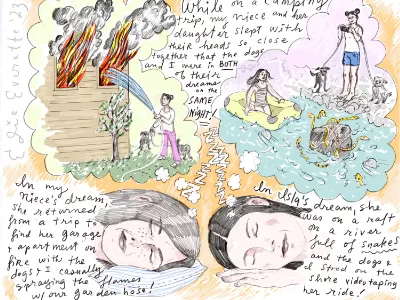 While on a camping
trip, my niece and her
daughter slept with
their heads so close
together that the dogs
and I were in BOTH
of their
dreams
on the
SAME
NIGHT!
In my
niece's dream,
she returned
from a trip to
find her garage
apartment on
fire with the
dogs & I casually
spraying the flames
w/ our garden hose!
In Isla's dream, she
was on a raft
on a river
full of snakes
and the dogs &
I stood on the
shore videotaping
her ride!